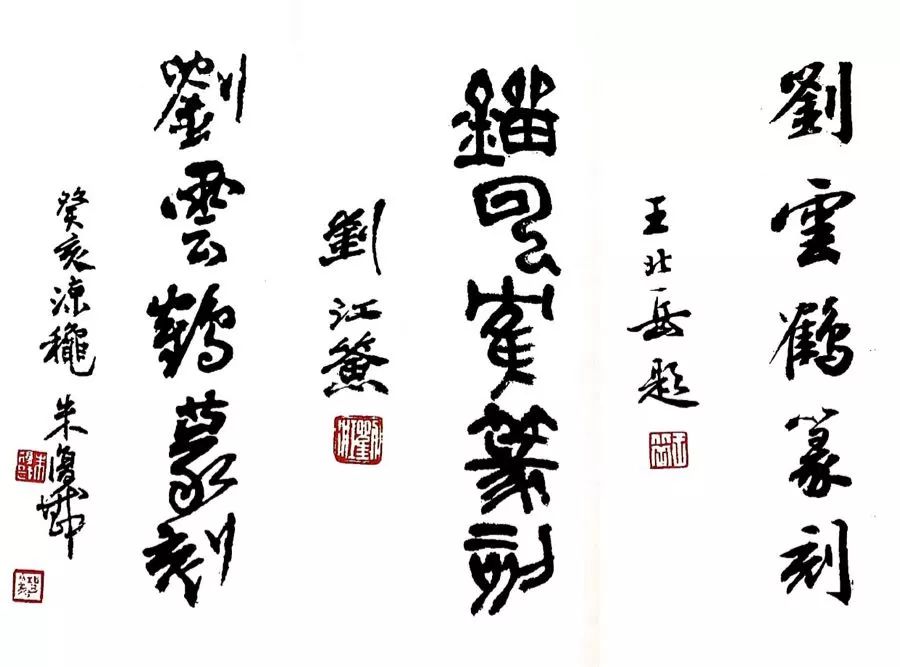 劉雲鶴篆刻
王北岳題
鎦云隺篆刻
劉江簽
劉雲鶴篆刻
癸亥涼龝 朱復戡